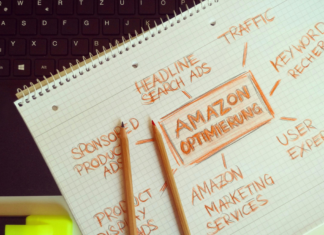 TRAFFIC
HEADLINE
SEARCH ADS
KEYWORD
RECHER
AMAZON
OPTIMIERUNG
SPONSORED
PRODUCT
ADS
USER
EXPE
AMAZON
MARKETING
SERVICES
PRODUCT
DISPLAY
ADS